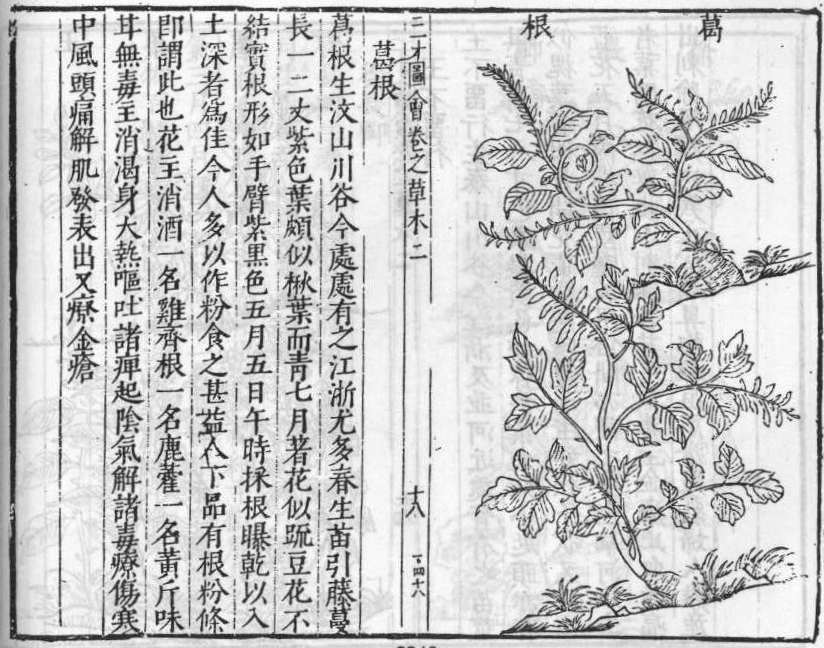 葛根
三才圖會卷之草木二
十八
一四十八
葛根
葛根生汶山川谷今處處有之江浙尤多春生苗引藤蔓
長一二丈紫色葉頗似楸葉而青七月著花似豌豆花不
結實根形如手臂紫黑色五月五日午時採根曝乾以入
土深者爲佳今人多以作粉食之甚益人下品有根粉條
即謂此也花主消酒一名雞齊根一名鹿藿一名黃斤味
甘無毒主消渴身大熱嘔吐諸痺起陰氣解諸毒療傷寒
中風頭痛解肌發表出又療金瘡